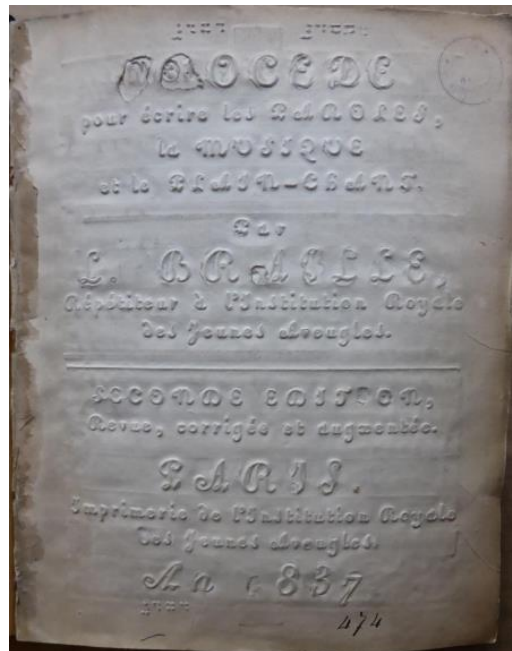 PROCEDE
pour écrire les PAROLES,
la MUSIQUE
et le PLAIN-CHANT.
Par
L. BRAILLE,
Répétiteur à l'Institution Royale
des Jeunes Aveugles.
SECONDE EDITION,
Revue, corrigée et augmentée.
PARIS.
Imprimerie de l'Institution Royale
des Jeunes Aveugles.
An 1837
474